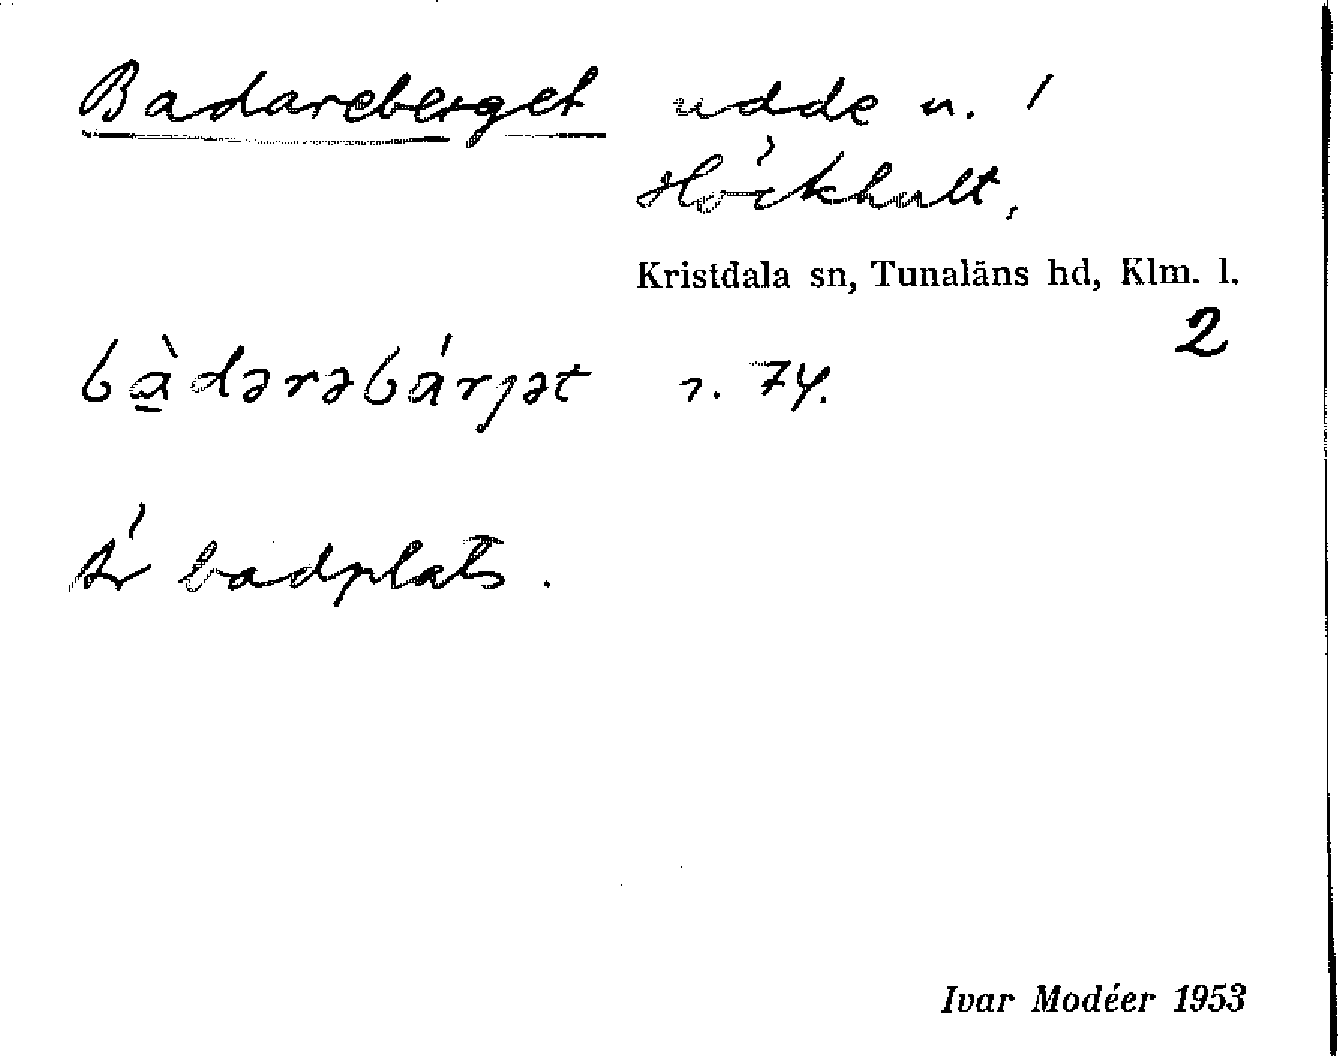 Badareberget udde n. /
Höckhult,
Kristdala sn, Tunaläns hd, Klm. l.
2
bàdərəbárjət n. 74.
Är badplats.
Ivar Modéer 1953